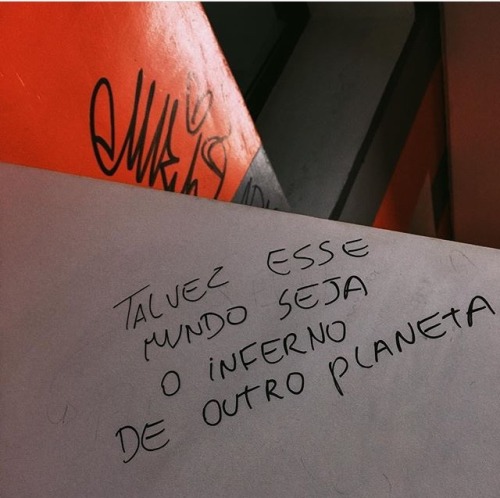 TALVEZ ESSE
MUNDO SEJA
O iNFERNO
DE OUTRO PLANETA